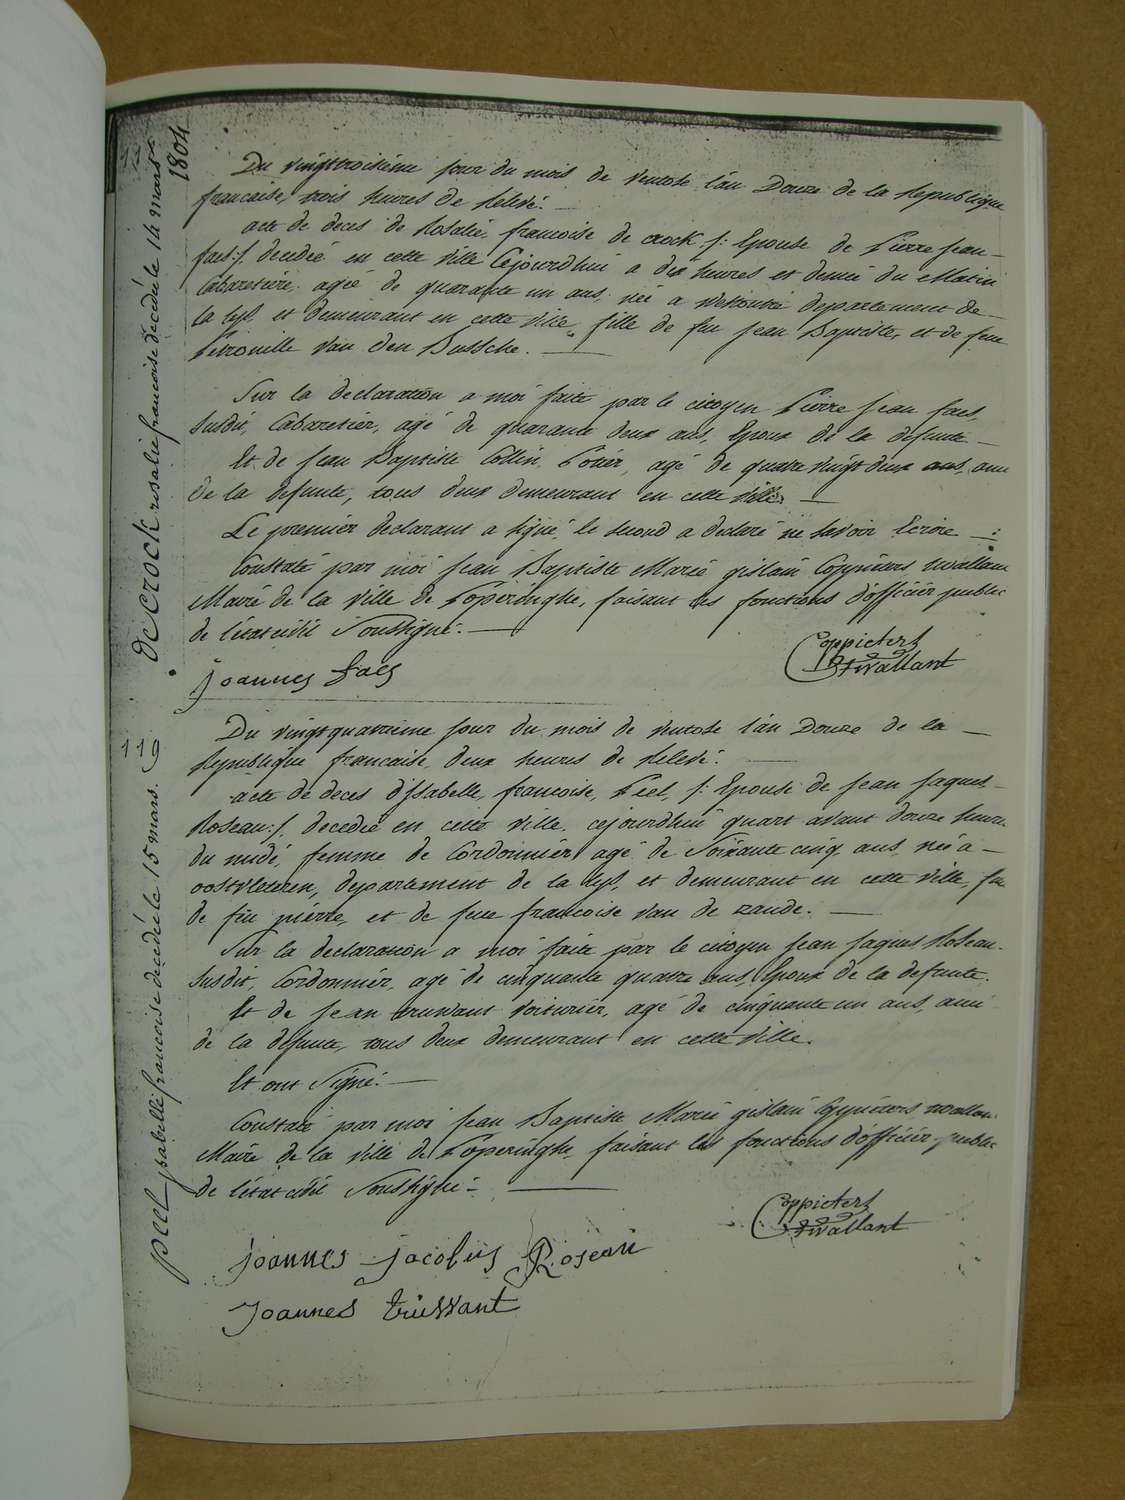 1804
De CROCK rosalie francoise decédé le 14 mars
Du vingttroisiéme jour du mois de ventose l'án Douze de la Republique
francaise, trois heures de Relevé.
acte de deces de Rosalie, francoise de crock, /: Epouse de Pierre Jean
faes:/ decedée en cette ville Cejourdhui a dix heures et demié du Matin
Cabaretiére, ageé de quarante un ans, neé a departement de
la Lys, et demeurant en cette ville, fille de feu Jean Baptiste, et de feue
Petronille Van Den Bussche.
Sur la declaration a moi faite par le citoyen Pierre Jean faes,
susdit, Cabaretiér, agé de quarante deux ans, Epoux de la defunte
Et de Jean Baptiste Collin, agé de quatre vingt deux ans, ami
de la defunte, tous deux demeurant en cette ville.
Le premiér declarant a signé, le second a declaré ne savoir Ecrire
Constaté par moi Jean Baptiste Marie gislain Coppieters wallant
Maire de la ville de Poperinghe, faisant les fonctions d'officiér public
de l'état civil Soussigné.
Coppieters
wallant
joannes faes
119
peel ysabelle francoise decédé le 15 mars.
Du vingtquatriéme jour du mois de ventose l'án Douze de la
Republique francaise, deux heures de Relevé.
acte de deces d'Isabelle, francoise, Peel, /: Epouse de Jean Jaques
Roseau:/ decedeé en cette ville, cejourdhui quart avant douze heures
du midi, femme de Cordonniér, agé de Soixante cinq ans, neé a
oostvleteren, departement de la Lys, et demeurant en cette ville, fille
de feu piérre, et de feue francoise van de zande.
Sur la declaration a moi faite par le citoyen Jean Jaques Roseau
susdit, Cordonniér, agé de cinquante quatre ans, Epoux de la defunte.
Et de Jean truwant voituriér, agé de cinquante un ans, ami
de la defunte, tous deux demeurant en cette ville.
Et ont Signé.
Constaté par moi Jean Baptiste Marie gislain Coppieters wallant
Maire de la ville de Poperinghe, faisant les fonctions d'officiér public
de l'état civil Soussigné.
Coppieters
wallant
joannes jacobus Roseau
joannes truwant